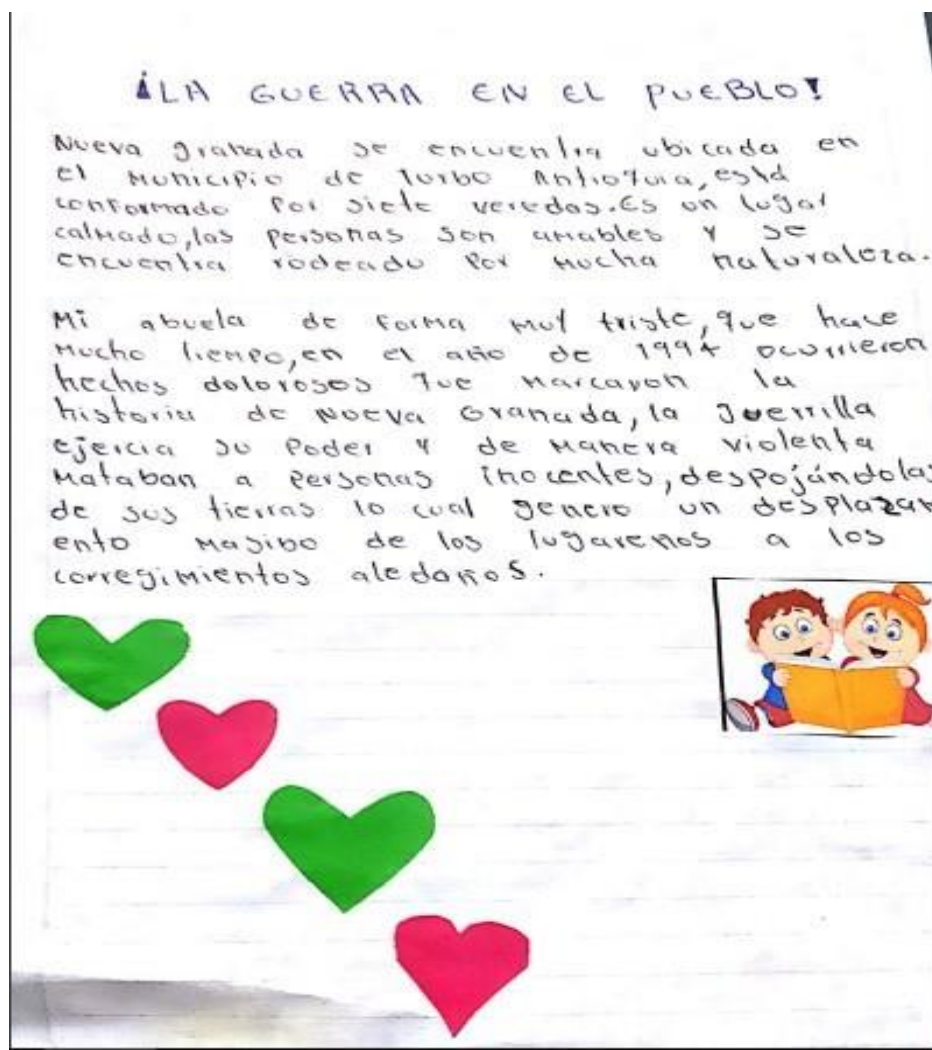 ¡LA GUERRA EN EL PUEBLO!
Nueva granada se encuentra ubicada en
el Municipio de Turbo Antioquia, está
conformado por siete veredas. Es un lugar
calmado, las personas son amables y se
encuentra rodeado por mucha naturaleza.
Mi abuela de forma muy triste, que hace
mucho tiempo, en el año de 1994 ocurrieron
hechos dolorosos que marcaron la
historia de Nueva Granada, la guerrilla
ejercia su poder y de manera violenta
mataban a personas inocentes, despojándolas
de sus tierras lo cual genero un desplazami
ento masibo de los lugareños a los
corregimientos aledaños.